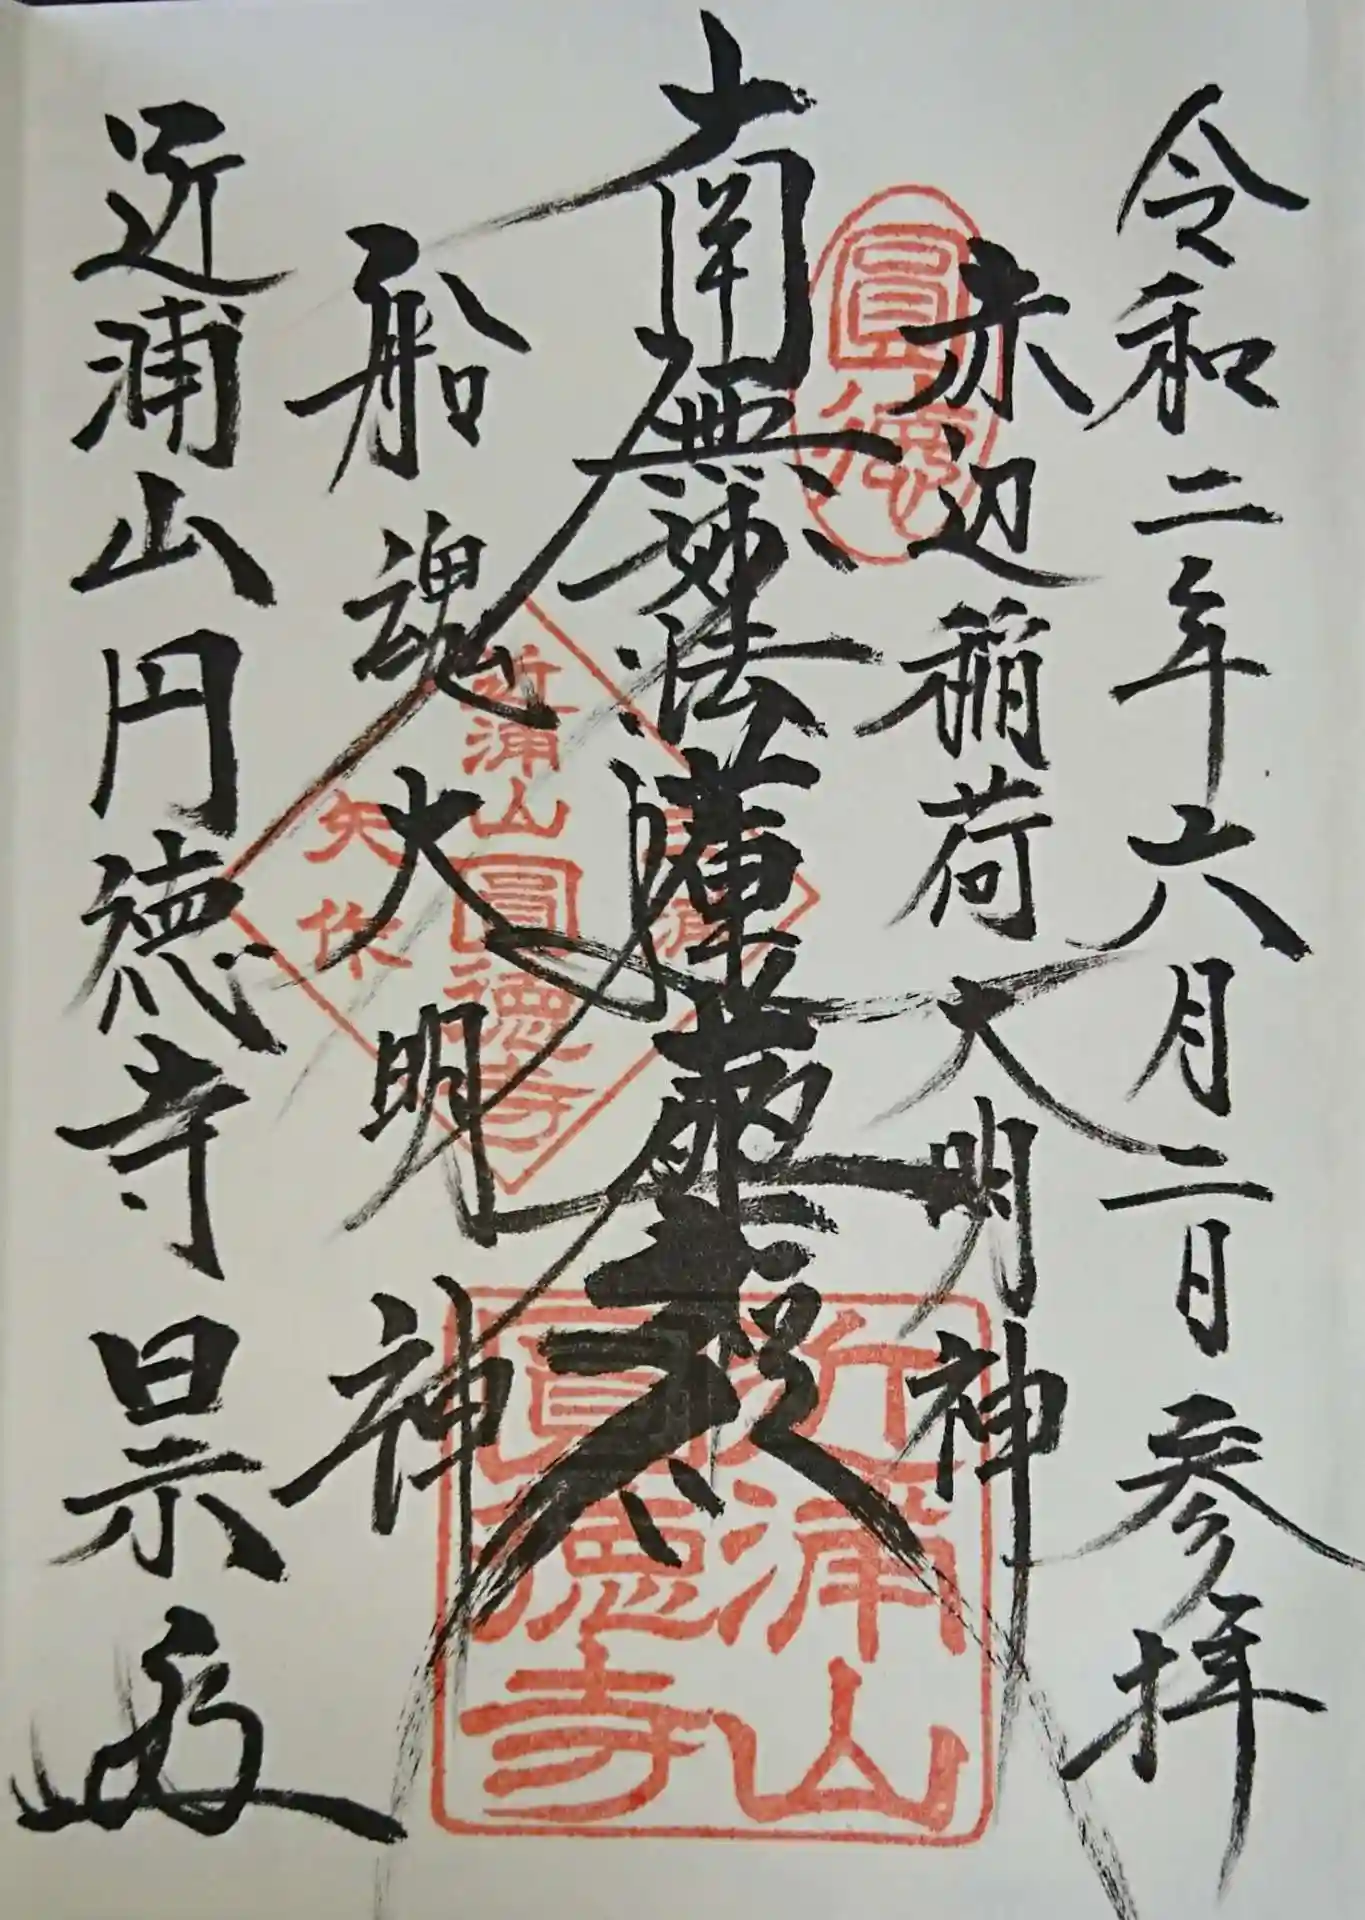 令和二年六月二日参拝
赤辺稲荷大明神
南無妙法蓮華経
船魂大明神
近浦山円徳寺日宗
圓徳
近浦山圓徳寺
矢作
近浦山
圓徳寺